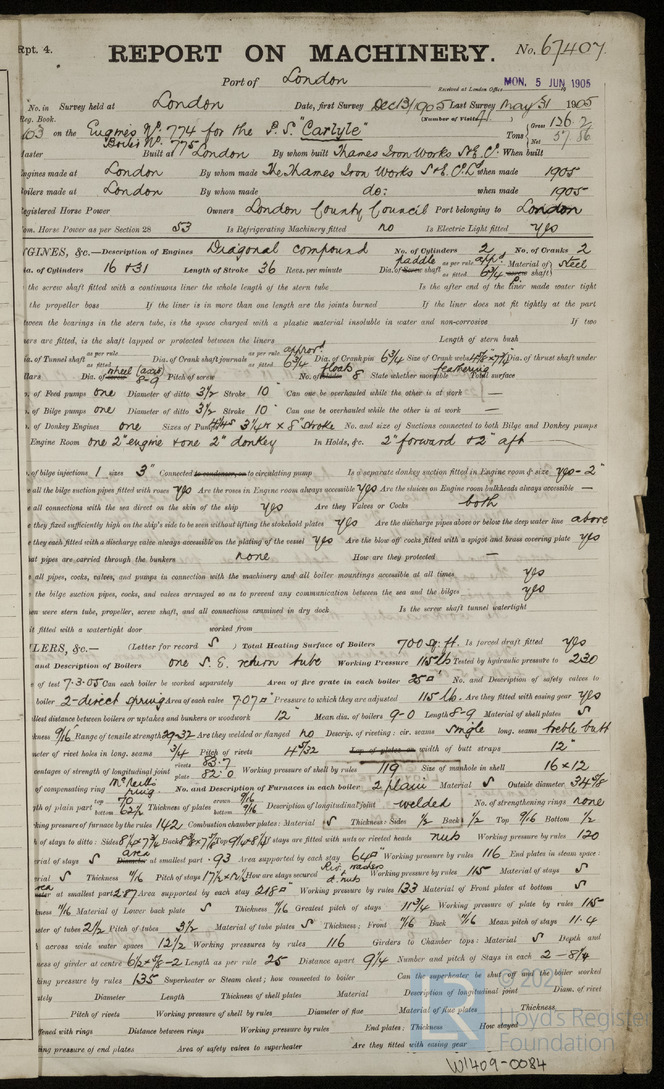 Rpt. 4.
REPORT ON MACHINERY.
No. 67407
Port of London
Received at London Office MON. 5 JUN 1905
No. in Survey held at London Date, first Survey Dec 13/1905 Last Survey May 31 1905
Reg. Book. (Number of Visits 41.)
103 on the Engines No. 774 for the P.S. "Carlyle" Tons Gross 136.2
Boiler No. 775 Net 57.86
Master Built at London By whom built Thames Iron Works S & E. Co. When built
Engines made at London By whom made The Thames Iron Works S & E. Co. Ld when made 1905
Boilers made at London By whom made do: when made 1905
Registered Horse Power Owners London County Council Port belonging to London
Nom. Horse Power as per Section 28 53 Is Refrigerating Machinery fitted no Is Electric Light fitted yes
ENGINES, &c.—Description of Engines Diagonal compound No. of Cylinders 2 No. of Cranks 2
Dia. of Cylinders 16 & 31 Length of Stroke 36 Revs. per minute Dia. of Screw paddle shaft as per rule app'd as fitted 6 3/4 Material of screw shaft steel
the screw shaft fitted with a continuous liner the whole length of the stern tube Is the after end of the liner made water tight
the propeller boss If the liner is in more than one length are the joints burned If the liner does not fit tightly at the part
between the bearings in the stern tube, is the space charged with a plastic material insoluble in water and non-corrosive If two
liners are fitted, is the shaft lapped or protected between the liners Length of stern bush
Dia. of Tunnel shaft as per rule as fitted Dia. of Crank shaft journals as per rule approv'd as fitted 6 3/4 Dia. of Crank pin 6 3/4 Size of Crank webs Dia. of thrust shaft under
collars Dia. of wheel 8-9 Pitch of screw No. of floats 8 State whether moveable feathering Total surface
No. of Feed pumps one Diameter of ditto 3 1/2 Stroke 10 Can one be overhauled while the other is at work —
No. of Bilge pumps one Diameter of ditto 3 1/2 Stroke 10 Can one be overhauled while the other is at work —
No. of Donkey Engines one Sizes of Pumps 3 1/4 × 8" stroke No. and size of Suctions connected to both Bilge and Donkey pumps
Engine Room one 2" engine & one 2" donkey In Holds, &c. 2" forward & 2" aft
No. of bilge injections 1 sizes 3" Connected to condenser, or to circulating pump Is a separate donkey suction fitted in Engine room & size yes - 2"
Are all the bilge suction pipes fitted with roses yes Are the roses in Engine room always accessible yes Are the sluices on Engine room bulkheads always accessible —
all connections with the sea direct on the skin of the ship yes Are they Valves or Cocks both
they fixed sufficiently high on the ship's side to be seen without lifting the stokehold plates yes Are the discharge pipes above or below the deep water line above
they each fitted with a discharge valve always accessible on the plating of the vessel yes Are the blow off cocks fitted with a spigot and brass covering plate yes
What pipes are carried through the bunkers none How are they protected —
all pipes, cocks, valves, and pumps in connection with the machinery and all boiler mountings accessible at all times yes
the bilge suction pipes, cocks, and valves arranged so as to prevent any communication between the sea and the bilges yes
When were stern tube, propeller, screw shaft, and all connections examined in dry dock Is the screw shaft tunnel watertight
it fitted with a watertight door worked from
BOILERS, &c.— (Letter for record S) Total Heating Surface of Boilers 700 sq. ft. Is forced draft fitted yes
No. and Description of Boilers one S.E. return tube Working Pressure 115 lb Tested by hydraulic pressure to 230
Date of test 7-3-05 Can each boiler be worked separately Area of fire grate in each boiler 25 □' No. and Description of safety valves to
boiler 2 - direct spring Area of each valve 7.07 □" Pressure to which they are adjusted 115 lb. Are they fitted with easing gear yes
Smallest distance between boilers or uptakes and bunkers or woodwork 12" Mean dia. of boilers 9-0 Length 8-9 Material of shell plates S
Thickness 9/16 Range of tensile strength 29-32 Are they welded or flanged no Descrip. of riveting: cir. seams single long. seams treble butt
Diameter of rivet holes in long. seams 3/4 Pitch of rivets 4 5/32 Lap of plates or width of butt straps 12"
Percentages of strength of longitudinal joint rivets 83.7 plate 82.0 Working pressure of shell by rules 119 Size of manhole in shell 16 × 12
of compensating ring McNeill's ring. No. and Description of Furnaces in each boiler 2 plain Material S Outside diameter 34 5/8
Length of plain part top 70 bottom 62 1/2 Thickness of plates crown 9/16 bottom 9/16 Description of longitudinal joint welded No. of strengthening rings none
Working pressure of furnace by the rules 142 Combustion chamber plates: Material S Thickness: Sides 1/2 Back 1/2 Top 9/16 Bottom 1/2
Pitch of stays to ditto: Sides 8 1/2 × 7 3/4 Back Top If stays are fitted with nuts or riveted heads nuts Working pressure by rules 120
Material of stays S area at smallest part .93 Area supported by each stay 64 □" Working pressure by rules 116 End plates in steam space:
Material S Thickness 11/16 Pitch of stays How are stays secured d. nuts Working pressure by rules 115 Material of stays S
area at smallest part 2.87 Area supported by each stay 218 □" Working pressure by rules 133 Material of Front plates at bottom S
Thickness 11/16 Material of Lower back plate S Thickness 11/16 Greatest pitch of stays 11 3/4 Working pressure of plate by rules 115
Diameter of tubes 2 1/2 Pitch of tubes 3 1/2 Material of tube plates S Thickness: Front 11/16 Back 11/16 Mean pitch of stays 11.4
Pitch across wide water spaces 12 1/2 Working pressures by rules 116 Girders to Chamber tops: Material S Depth and
thickness of girder at centre 6 1/2 × 5/8 - 2 Length as per rule 25 Distance apart 9 1/4 Number and pitch of Stays in each 2 - 8 1/4
Working pressure by rules 135 Superheater or Steam chest; how connected to boiler Can the superheater be shut off and the boiler worked
separately Diameter Length Thickness of shell plates Material Description of longitudinal joint Diam. of rivet
Pitch of rivets Working pressure of shell by rules Diameter of flue Material of flue plates Thickness
stiffened with rings Distance between rings Working pressure by rules End plates: Thickness How stayed
Working pressure of end plates Area of safety valves to superheater Are they fitted with easing gear
© 2021
Lloyd's Register
Foundation
W1409-0084